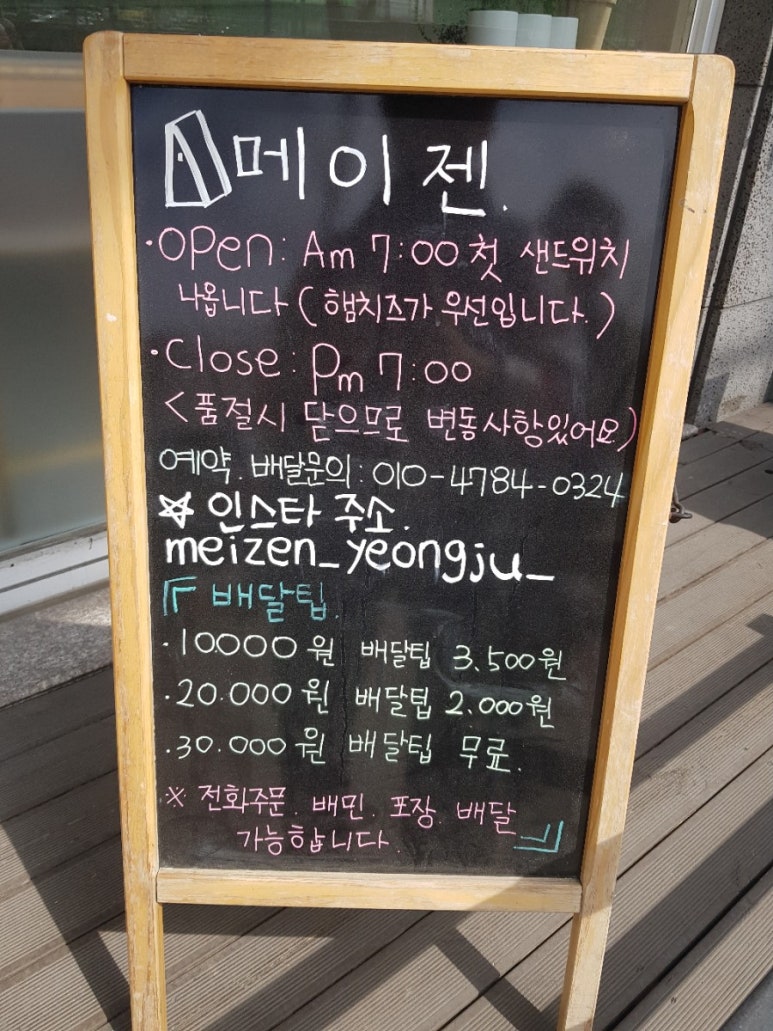 메이젠.
·open: Am 7:00 첫 샌드위치
나옵니다 (햄치즈가 우선입니다.)
·close: pm 7:00
<품절시 닫으므로 변동사항있어요)
예약. 배달문의: 010-4784-0324
☆ 인스타 주소.
meizen_yeongju_
『배달팁.
·10.000원 배달팁 3.500원
·20.000원 배달팁 2.000원
·30.000원 배달팁 무료.
※ 전화주문. 배민. 포장. 배달
가능합니다. 』